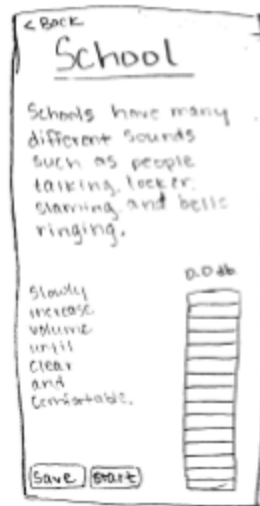 < Back
School
Schools have many
different sounds
such as people
talking, locker
slaming, and bells
ringing.
0.0 db
Slowly
increase
volume
until
clear
and
comfortable.
Save
Start